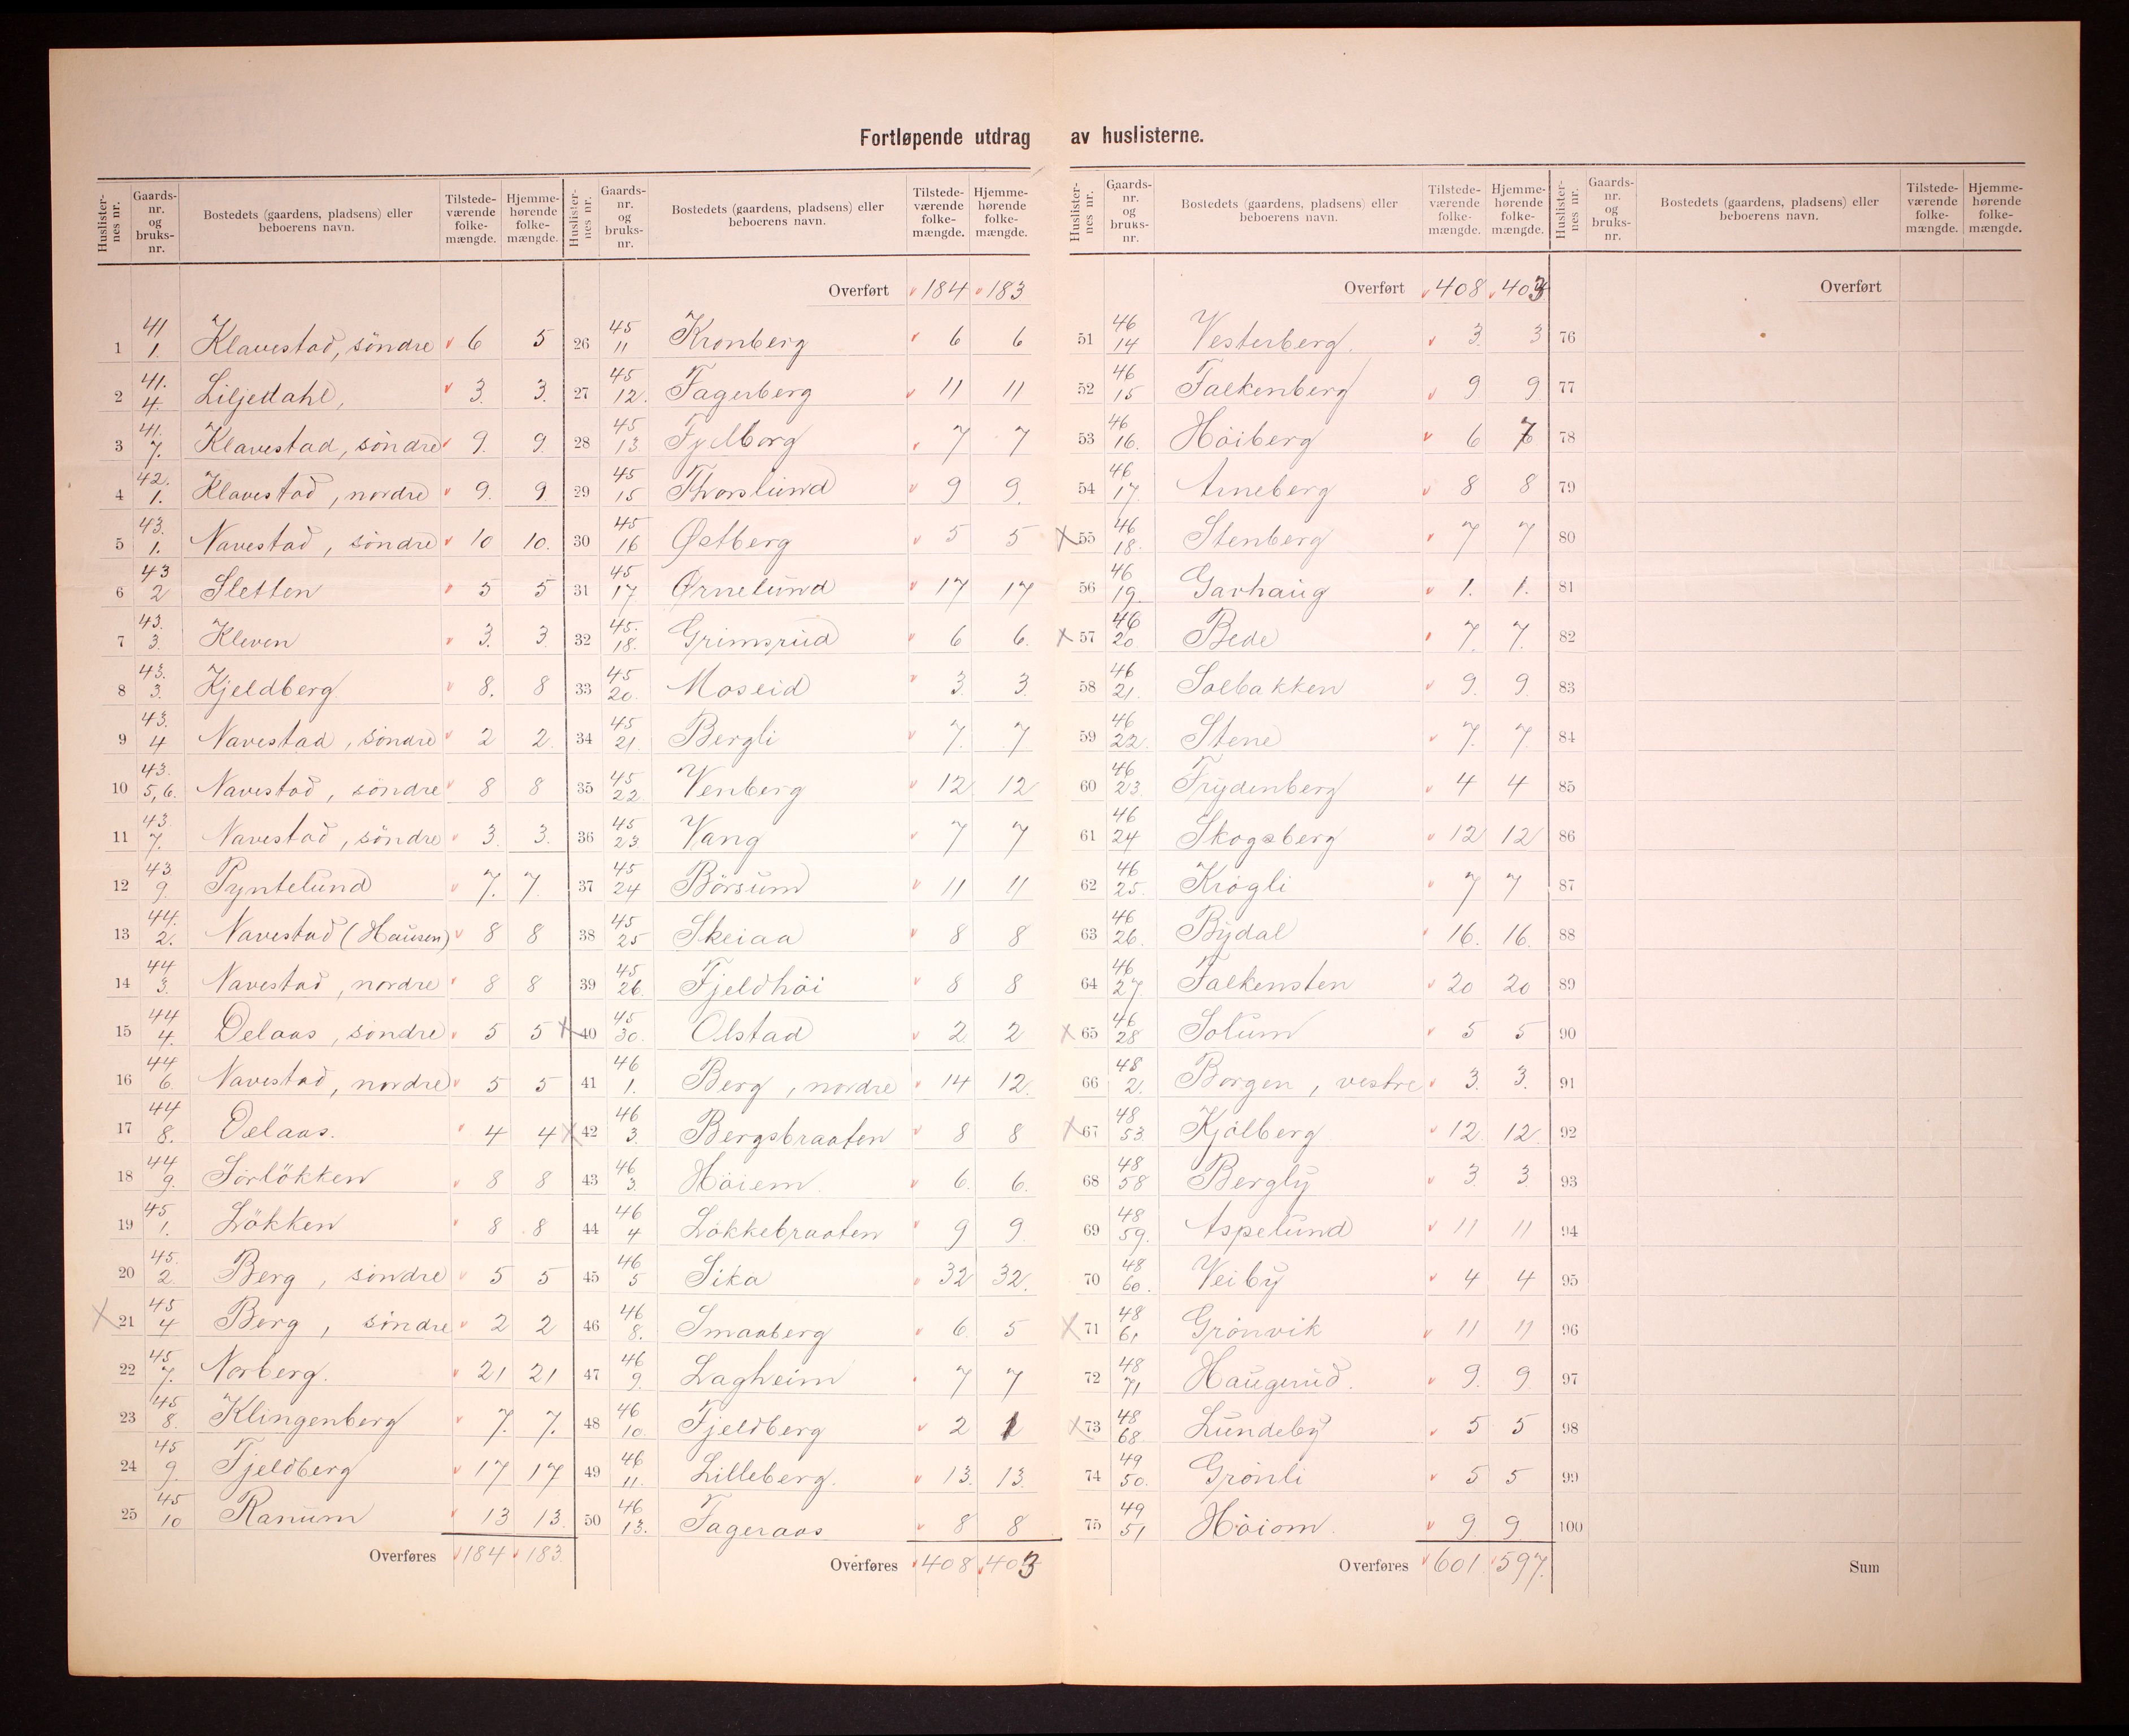 Fortløpende utdrag av huslisterne.
Huslister-nes nr. Gaards-nr. og bruks-nr. Bostedets (gaardens, pladsens) eller beboerens navn. Tilstede-værende folke-mængde. Hjemme-hørende folke-mængde.
1 41 1. Klavestad, söndre 6 5
2 41. 4. Liljedahl, 3. 3.
3 41. 7. Klavestad, söndre 9. 9.
4 42. 1. Klavestad, nordre 9. 9
5 43. 1. Navestad, söndre 10 10.
6 43 2 Sletten 5 5
7 43. 3. Kleven 3. 3.
8 43. 3. Kjeldberg 8. 8
9 43. 4 Navestad, söndre 2 2
10 43. 5,6. Navestad, söndre 8 8
11 43. 7. Navestad, söndre 3. 3.
12 43 9. Pyntelund 7. 7.
13 44. 2. Navestad (Hausen) 8 8
14 44 3. Navestad, nordre 8 8
15 44 4. Delaas, söndre 5 5
16 44 6. Navestad, nordre 5 5
17 44 8. Delaas. 4 4
18 44 9. Sörlökken 8 8
19 45 1. Lökken 8 8
20 45. 2 Berg, söndre 5 5
X 21 45 4 Berg, söndre 2 2
22 45. 7. Norberg. 21 21
23 45 8. Klingenberg 7. 7.
24 45 9. Fjeldberg 17 17
25 45 10 Ranum 13 13.
Overføres 184 183.
Huslister-nes nr. Gaards-nr. og bruks-nr. Bostedets (gaardens, pladsens) eller beboerens navn. Tilstede-værende folke-mængde. Hjemme-hørende folke-mængde.
Overført 184 183
26 45 11 Kronberg 6 6
27 45 12. Fagerberg 11 11
28 45 13 Fjelborg 7 7
29 45 15 Thorslund 9 9.
30 45 16 Østberg 5 5
31 45 17 Ørnelund 17 17
32 45. 18. Grimsrud 6 6.
33 45 20. Moseid 3. 3.
34 45 21. Bergli 7. 7
35 45 22 Venberg 12 12
36 45 23 Vang 7 7
37 45 24 Börsum 11 11
38 45 25 Skeiaa 8 8
39 45 26. Fjeldhöi 8 8
X 40 45 30. Olstad 2 2
41 46 1. Berg, nordre 14 12.
X 42 46 3. Bergsbraaten 8 8
43 46 3. Höiem. 6. 6.
44 46 4 Lökkebraaten 9 9.
45 46 5 Sika 32 32.
46 46 8. Smaaberg 6. 5
47 46 9. Lagheim 7 7
48 46 10. Fjeldberg 2 1
49 46 11. Lilleberg. 13. 13.
50 46 13. Fageraas 8 8
Overføres 408 403
Huslister-nes nr. Gaards-nr. og bruks-nr. Bostedets (gaardens, pladsens) eller beboerens navn. Tilstede-værende folke-mængde. Hjemme-hørende folke-mængde.
Overført 408 403
51 46 14 Vesterberg. 3. 3
52 46 15 Falkenberg 9 9
53 46 16. Höiberg 6 7
54 46 17. Arneberg 8 8
X 55 46 18. Stenberg 7 7
56 46 19. Garhaug 1. 1.
X 57 46 20. Bede 7. 7.
58 46 21. Solbakken 9. 9.
59 46 22. Stene 7. 7.
60 46 23. Frydenberg 4 4
61 46 24 Skogsberg 12 12
62 46 25. Krogli 7 7
63 46 26. Bydal 16. 16.
64 46 27 Falkensten 20 20
X 65 46 28 Solum 5 5
66 48 2. Borgen, vestre 3. 3.
X 67 48 53. Kjölberg 12. 12.
68 48 58 Bergly 3 3
69 48 59. Aspelund 11 11
70 48 60. Veiby 4 4
X 71 48 61 Grönvik 11 11
72 48 71 Haugerud. 9. 9
X 73 48 68. Lundeby 5 5
74 49 50. Grönli 5 5
75 49 51 Höiom. 9. 9
Overføres 601. 597.
Huslister-nes nr. Gaards-nr. og bruks-nr. Bostedets (gaardens, pladsens) eller beboerens navn. Tilstede-værende folke-mængde. Hjemme-hørende folke-mængde.
Overført
76
77
78
79
80
81
82
83
84
85
86
87
88
89
90
91
92
93
94
95
96
97
98
99
100
Sum